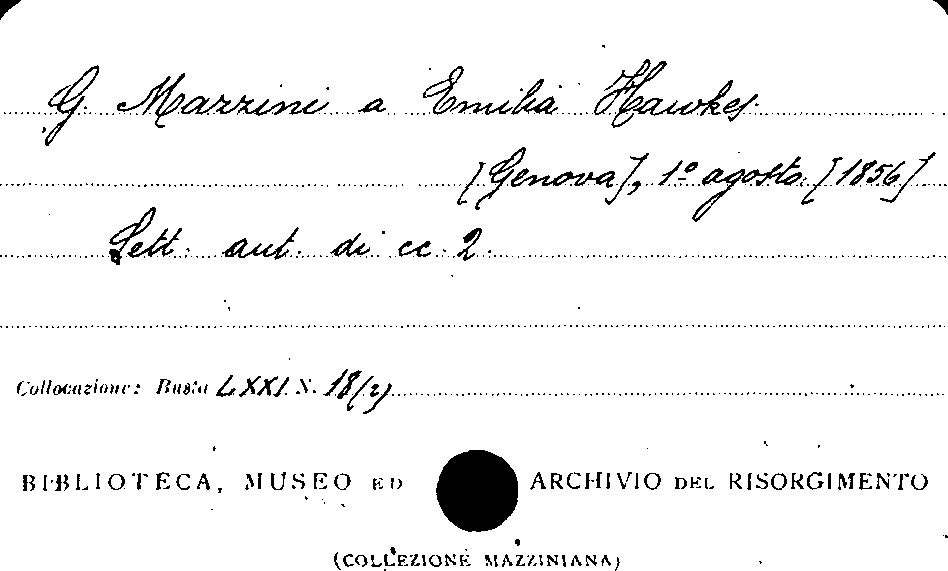 G. Mazzini a Emilia Hawkes.
[Genova], 1º agosto [1856]
Lett. aut. di cc. 2.
Collocazione: Busta LXXI N. 18(2)
BIBLIOTECA, MUSEO ED ARCHIVIO DEL RISORGIMENTO
(COLLEZIONE MAZZINIANA)